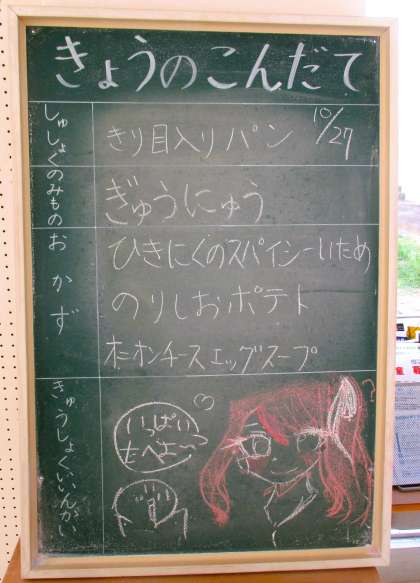 きょうのこんだて
しゅしょく
きり目入りパン 10/27
のみもの
ぎゅうにゅう
おかず
ひきにくのスパイシーいため
のりしおポテト
オニオンチーズエッグスープ
きゅうしょくいいんかい
いっぱい
たべよーっ